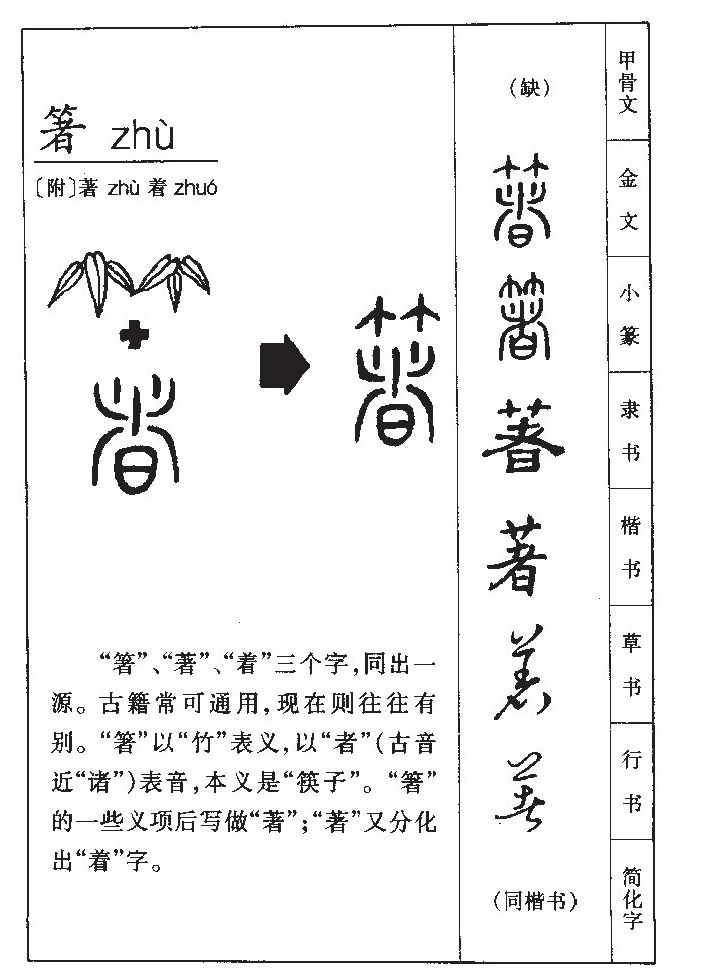 箸 zhù
〔附〕著 zhù 着 zhuó
“箸”、“著”、“着”三个字，同出一
源。古籍常可通用，现在则往往有
别。“箸”以“竹”表义，以“者”（古音
近“诸”）表音，本义是“筷子”。“箸”
的一些义项后写做“著”；“著”又分化
出“着”字。
（缺）
箸
箸
著
著
著
著
（同楷书）
甲骨文
金文
小篆
隶书
楷书
草书
行书
简化字